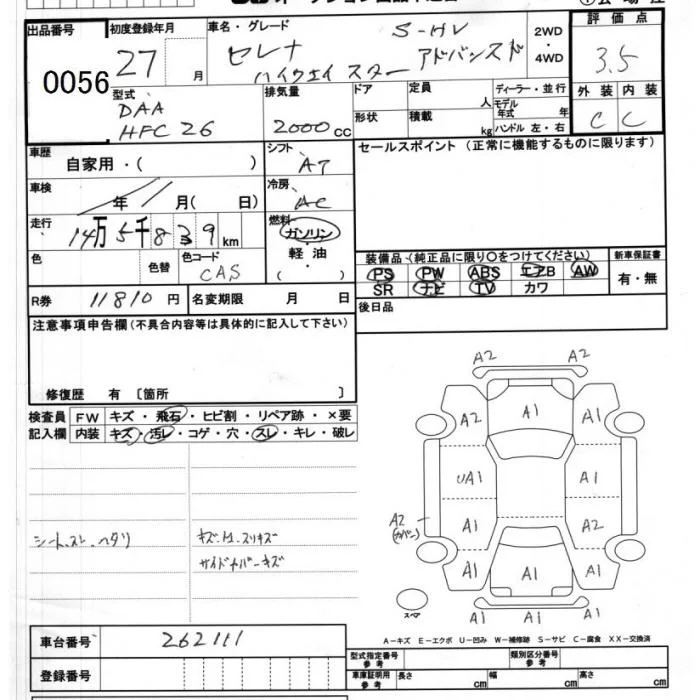 出品番号 初度登録年月 車名・グレード 2WD・4WD 評価点
0056 27 月 セレナ S-HV 3.5
ハイウェイスター アドバンスド
型式 排気量 ドア 定員 人 ディーラー・並行 外装 内装
DAA モデル年式 年 C C
HFC26 2000cc 形状 積載 kg ハンドル 左・右
車歴 シフト セールスポイント（正常に機能するものに限ります）
自家用・（ ） AT
車検 冷房
年 月（ 日） AC
走行 燃料
14万5千839km ガソリン
色 色替 色コード 軽油 装備品（純正品に限り○をつけてください） 新車保証書
CAS （ ） PS PW ABS エアB AW 有・無
SR ナビ TV カワ
R券 11810円 名変期限 月 日 後日品
注意事項申告欄（不具合内容等は具体的に記入して下さい）
修復歴 有〔箇所 〕
検査員 FW キズ・飛石・ヒビ割・リペア跡・×要
記入欄 内装 キズ・汚レ・コゲ・穴・スレ・キレ・破レ
A2 A2
A2 A1 A1
UA1 A1
A2 A1 A2
(カバー)
A1 A1 A1
A1 A1 A1
スペア
シート、スレ ヘタリ
サイドカバーキズ
A－キズ E－エクボ U－凹み W－補修跡 S－サビ C－腐食 XX－交換済
車台番号 262111
登録番号
型式指定番号参考 類別区分番号参考
車庫証明用参考 長さ cm 幅 cm 高さ cm